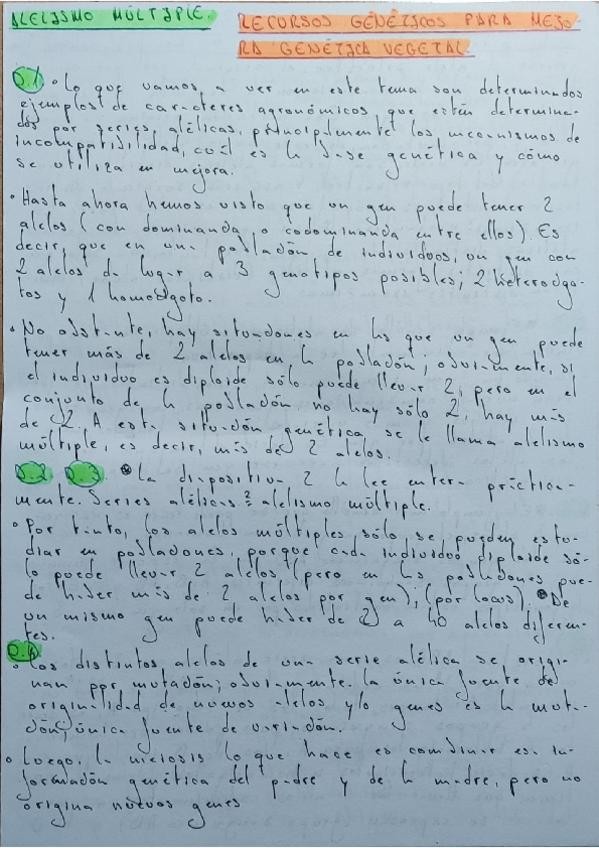 ALELISMO MÚLTIPLE.
RECURSOS GENÉTICOS PARA MEJO-
RA GENÉTICA VEGETAL.
D.1 • Lo que vamos a ver en este tema son determinados
ejemplos de caracteres agronómicos que estén determina-
dos por series alélicas, principalmente los mecanismos de
incompatibilidad, cuál es la base genética y cómo
se utiliza en mejora.
• Hasta ahora hemos visto que un gen puede tener 2
alelos (con dominancia o codominancia entre ellos). Es
decir, que en una población de individuos, un gen con
2 alelos da lugar a 3 genotipos posibles; 2 heterocigo-
tos y 1 homocigoto.
• No obstante, hay situaciones en las que un gen puede
tener más de 2 alelos en la población; obviamente, si
el individuo es diploide sólo puede llevar 2, pero en el
conjunto de la población no hay sólo 2, hay más
de 2. A esta situación genética se le llama alelismo
múltiple, es decir, más de 2 alelos.
D.2 D.3 • La diapositiva 2 la lee entera práctica-
mente. Series alélicas = alelismo múltiple.
• Por tanto, los alelos múltiples sólo se pueden estu-
diar en poblaciones, porque cada individuo diploide só-
lo puede llevar 2 alelos (pero en las poblaciones pue-
de haber más de 2 alelos por gen); (por locus). • De
un mismo gen puede haber de 2 a 40 alelos diferen-
tes.
D.4
• Los distintos alelos de una serie alélica se origi-
nan por mutación; obviamente. La única fuente de
originalidad de nuevos alelos y/o genes es la muta-
ción; única fuente de variación.
• Luego, la meiosis lo que hace es combinar esa in-
formación genética del padre y de la madre, pero no
origina nuevos genes